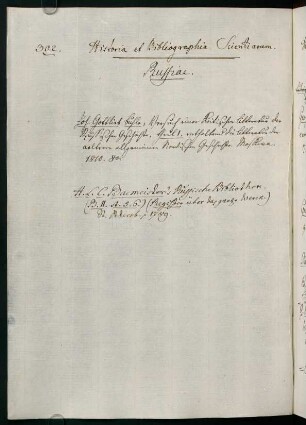 302. Historia et Bibliographia Scientiarum.
Russiae.
Joh. Gottlieb Buhle, Versuch einer kritischen Litteratur der
Russischen Geschichte, enthaltend die Litteratur der
aeltern allgemeinen Nordischen Geschichte. Moskwa
1810. 80.
H. L. C. Bacmeister's Russische Bibliothek.
(B. 11. 4. 5. 6.) (Register über das ganze Werk.)
St. Petersb. 1789.